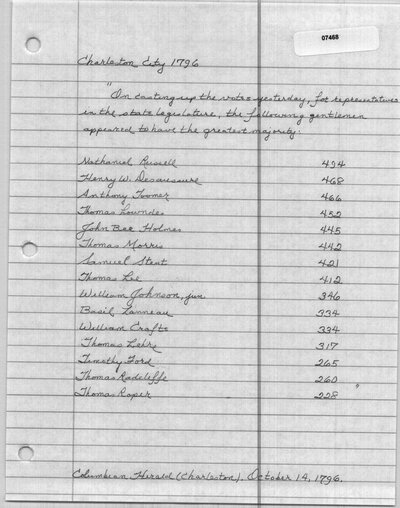 07468
Charleston City 1796
"On casting up the votes yesterday, for representatives
in the state legislature, the following gentlemen
appeared to have the greatest majority:
Nathaniel Russell 494
Henry W. Desaussure 468
Anthony Toomer 466
Thomas Lowndes 452
John Bee Holmes 445
Thomas Morris 442
Samuel Stent 421
Thomas Lee 412
William Johnson, jun 346
Basil Lanneau 334
William Crafts 334
Thomas Lehre 317
Timothy Ford 265
Thomas Radcliffe 260
Thomas Roper 228 "
Columbian Herald (Charleston). October 14, 1796.